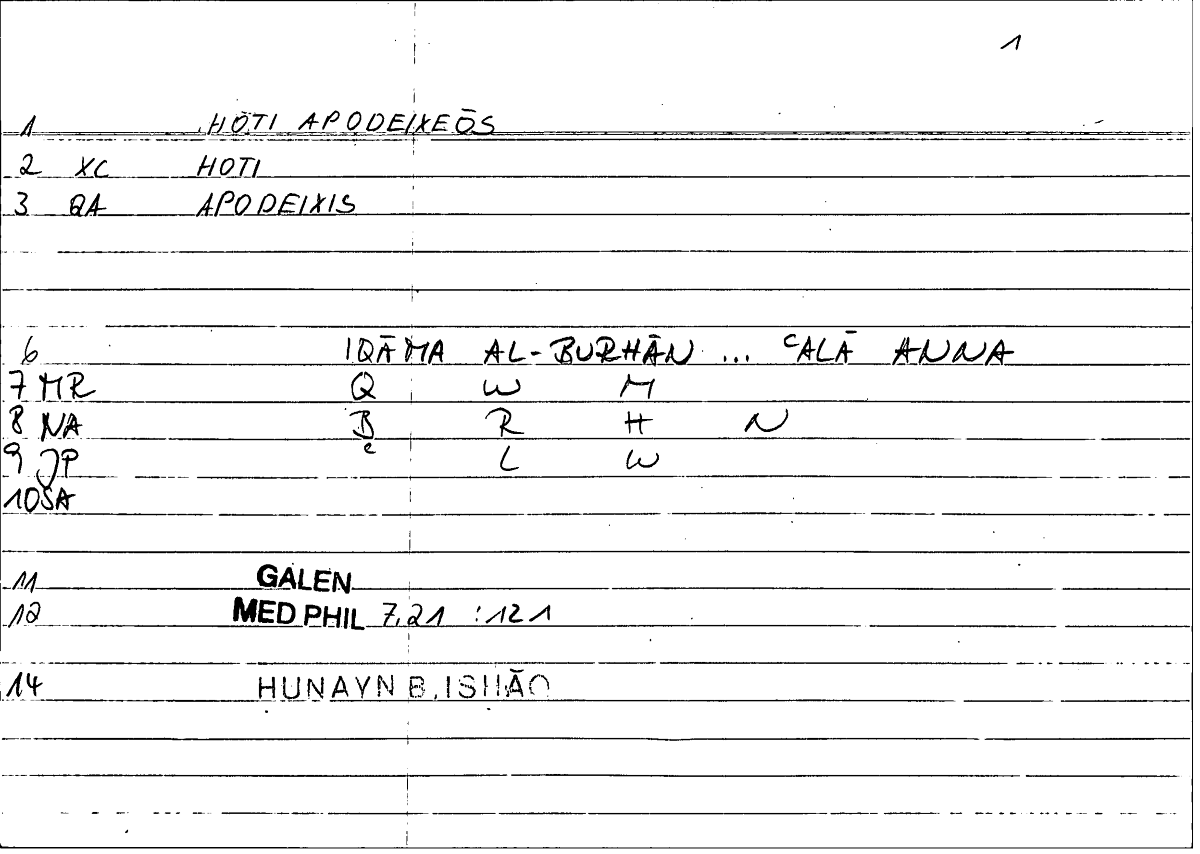 1
1 HOTI APODEIXEŌS
2 XC HOTI
3 QA APODEIXIS
6 IQĀMA AL-BURHĀN ... ᶜALĀ ANNA
7 MR Q W M
8 NA B R H N
9 JP ᶜ L W
10 SA
11 GALEN
12 MED PHIL 7,21 :121
14 HUNAYN B. ISHĀQ